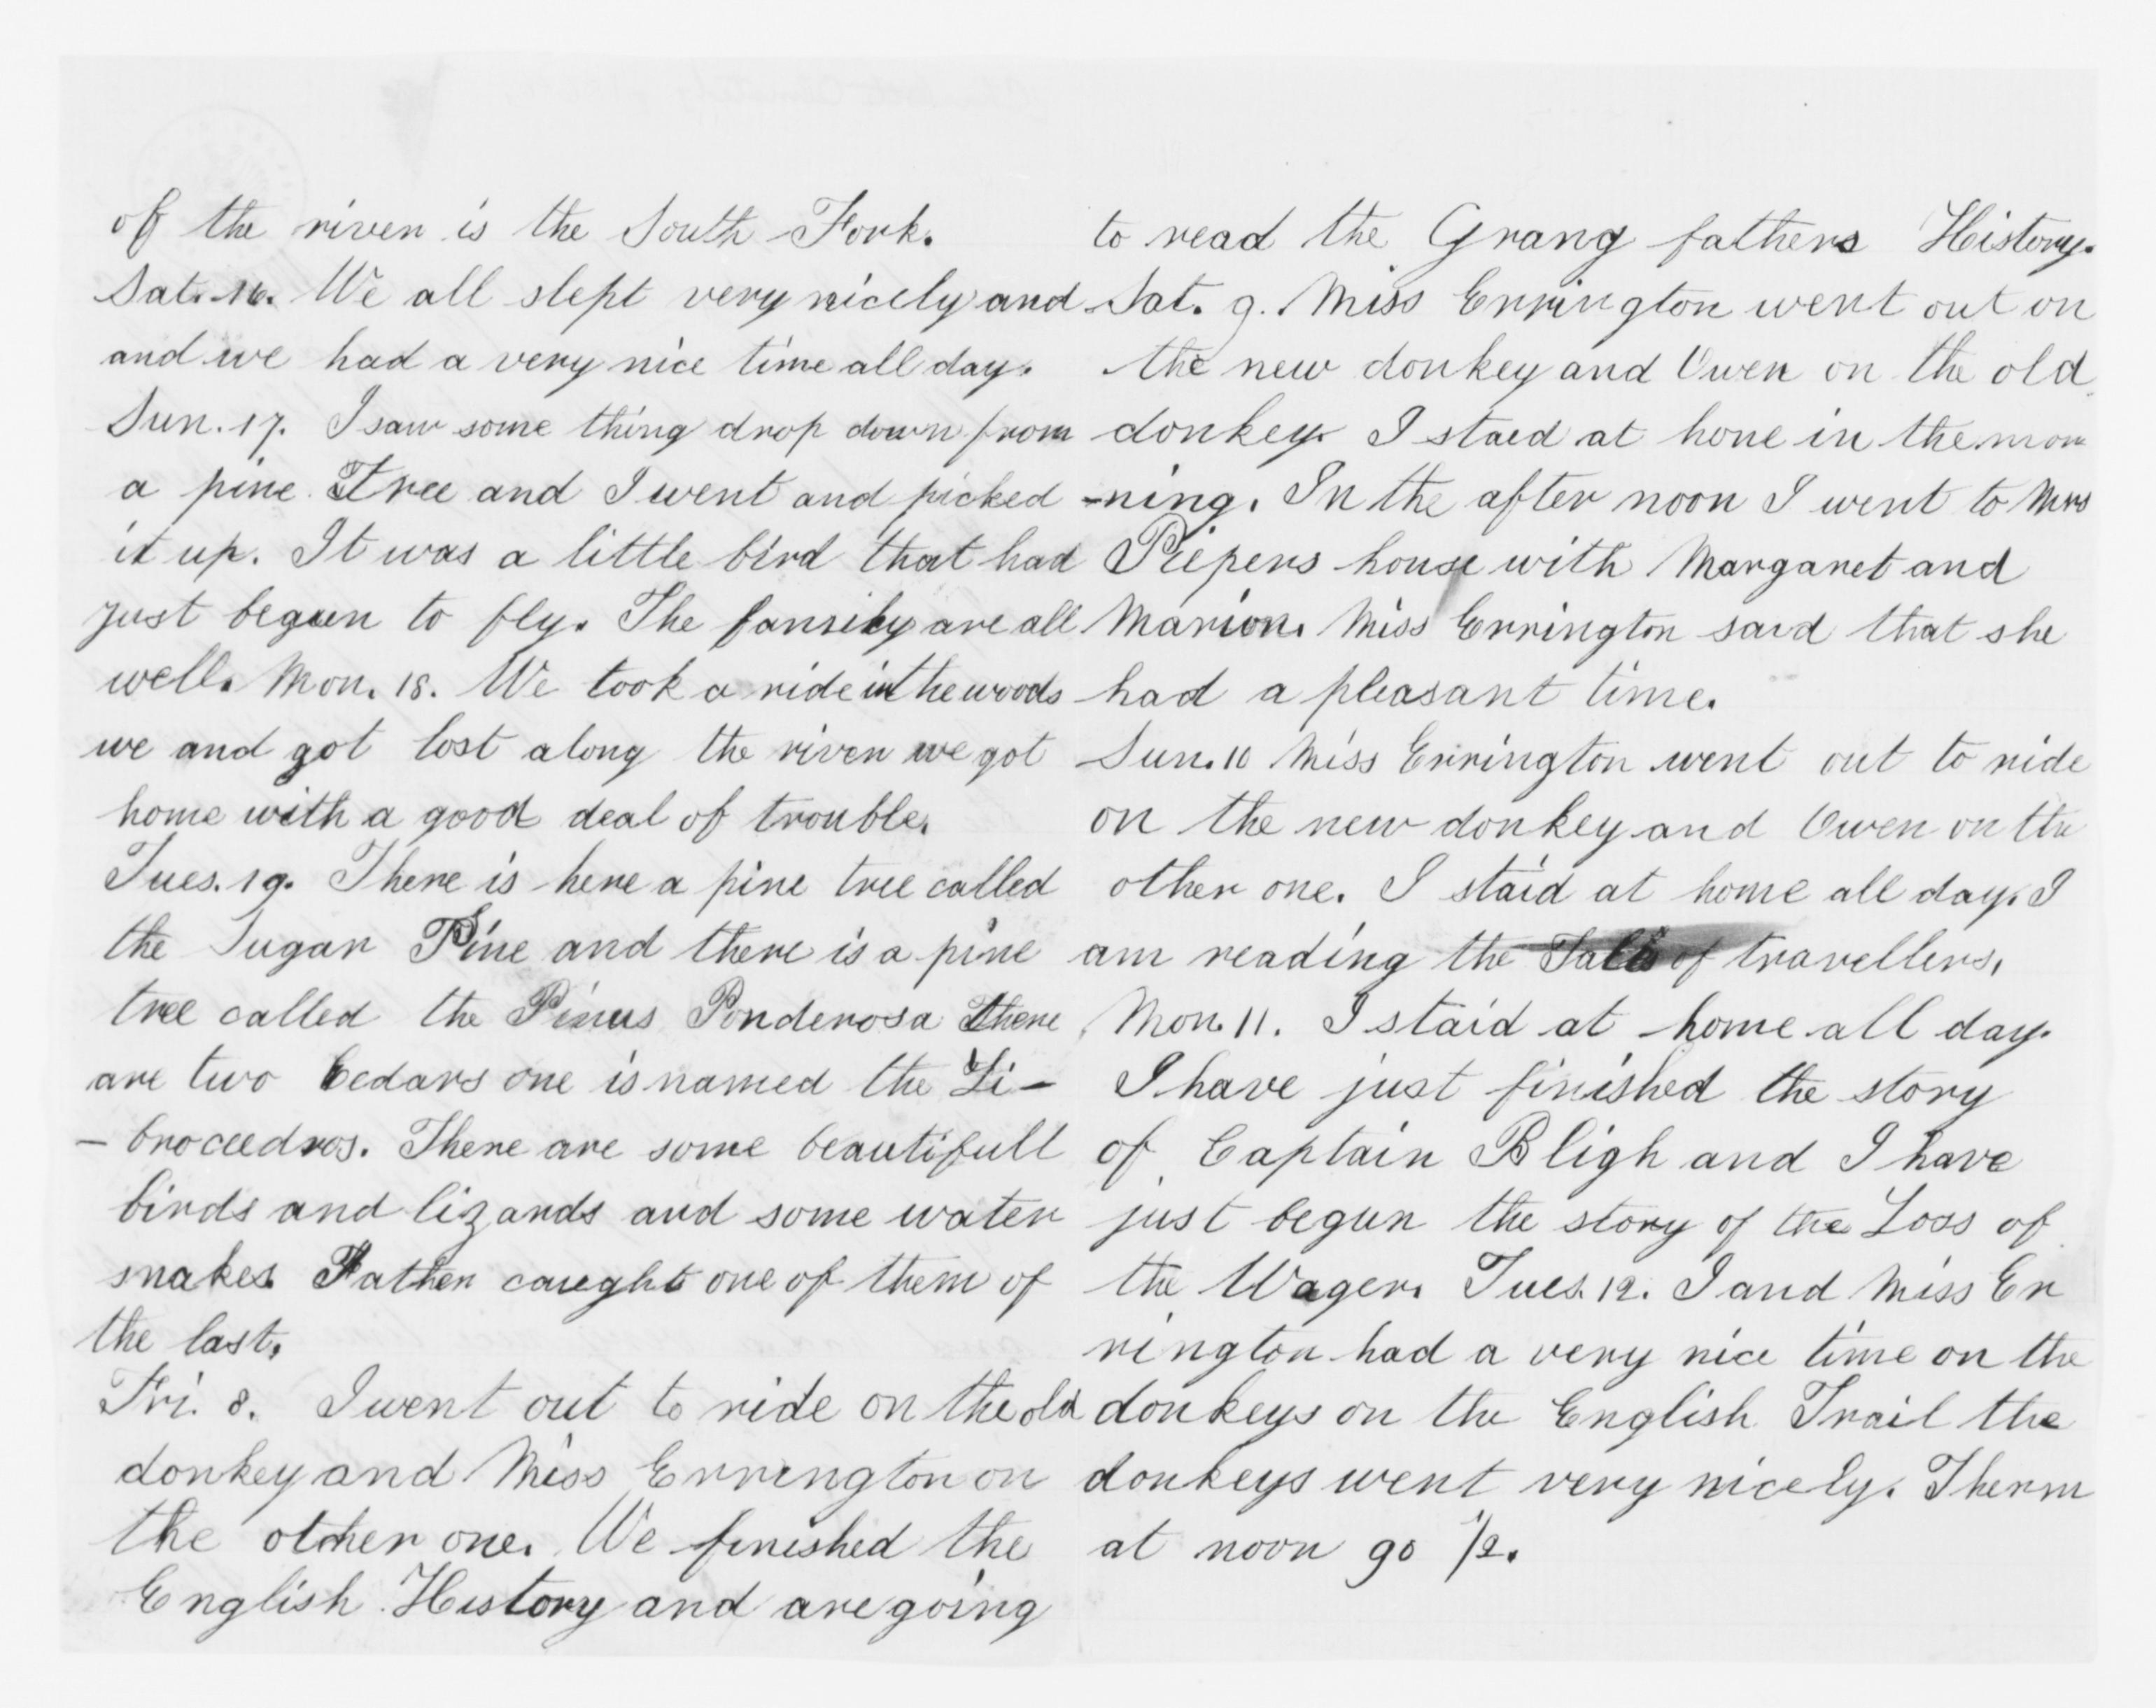 of the river is the South Fork.
Sat. 16. We all slept very nicely and
and we had a very nice time all day.
Sun. 17. I saw some thing drop down from
a pine Tree and I went and picked
it up. It was a little bird that had
just begun to fly. The family are all
well. Mon. 18. We took a ride in the woods
we and got lost along the river we got
home with a good deal of trouble.
Tues. 19. There is here a pine tree called
the Sugar Pine and there is a pine
tree called the Pinus Ponderosa There
are two Cedars one is named the Li-
-broceedros. There are some beautifull
birds and lizards and some water
snakes. Father caught one of them of
the last.
Fri. 8. I went out to ride on the old
donkey and Miss Errington on
the other one. We finished the
English History and are going
to read the Grang fathers History.
Sat. 9. Miss Errington went out on
the new donkey and Owen on the old
donkey. I staed at hone in the mor
-ning. In the after noon I went to Mrs
Piepers house with Margaret and
Marion. Miss Errington said that she
had a pleasant time.
Sun. 10 Miss Errington went out to ride
on the new donkey and Owen on the
other one. I staid at home all day. I
am reading the Tales of travellers.
Mon. 11. I staid at home all day.
I have just finished the story
of Captain Bligh and I have
just begun the story of the Loss of
the Wager. Tues. 12. I and Miss Er
rington had a very nice time on the
donkeys on the English Trail the
donkeys went very nicely. Therm
at noon 90 1/2.